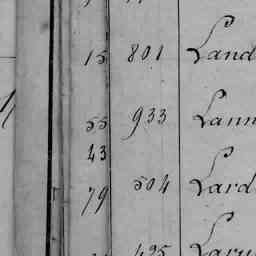 15 801 Land
55 933 Lann
43
79 504 Lard
495 Laru